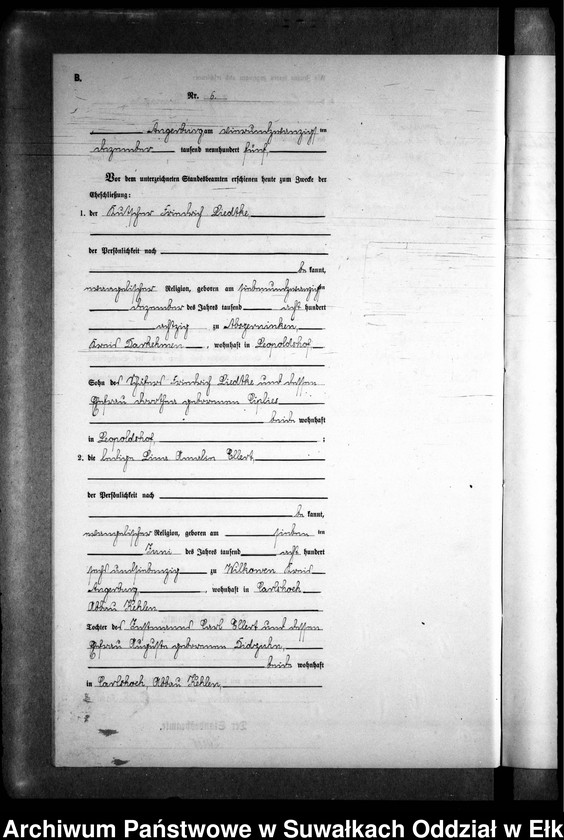 B.
Nr. 6.
Angerburg am vierundzwanzigsten
Dezember tausend neunhundert fünf.
Vor dem unterzeichneten Standesbeamten erschienen heute zum Zwecke der
Eheschließung:
1. der Kutscher Friedrich Liedtke
der Persönlichkeit nach
be kannt,
evangelischer Religion, geboren am siebenundzwanzigsten
Dezember des Jahres tausend acht hundert
achtzig zu
Kreis Darkehmen, wohnhaft in Leopoldshof
Sohn des Friedrich Liedtke und dessen
Ehefrau Dorothea geborenen
beide wohnhaft
in Leopoldshof, ;
2. die ledige Lina Amalie Ellert,
der Persönlichkeit nach
be kannt,
evangelischer Religion, geboren am sieben ten
Juni des Jahres tausend acht hundert
sechsundsiebenzig zu Wilkowen Kreis
Angerburg, wohnhaft in Carlshoch
Abbau Kehlen
Tochter des Instmanns Carl Ellert und dessen
Ehefrau Auguste geborenen
beide wohnhaft
in Carlshoch, Abbau Kehlen,
Archiwum Państwowe w Suwałkach Oddział w Ełk